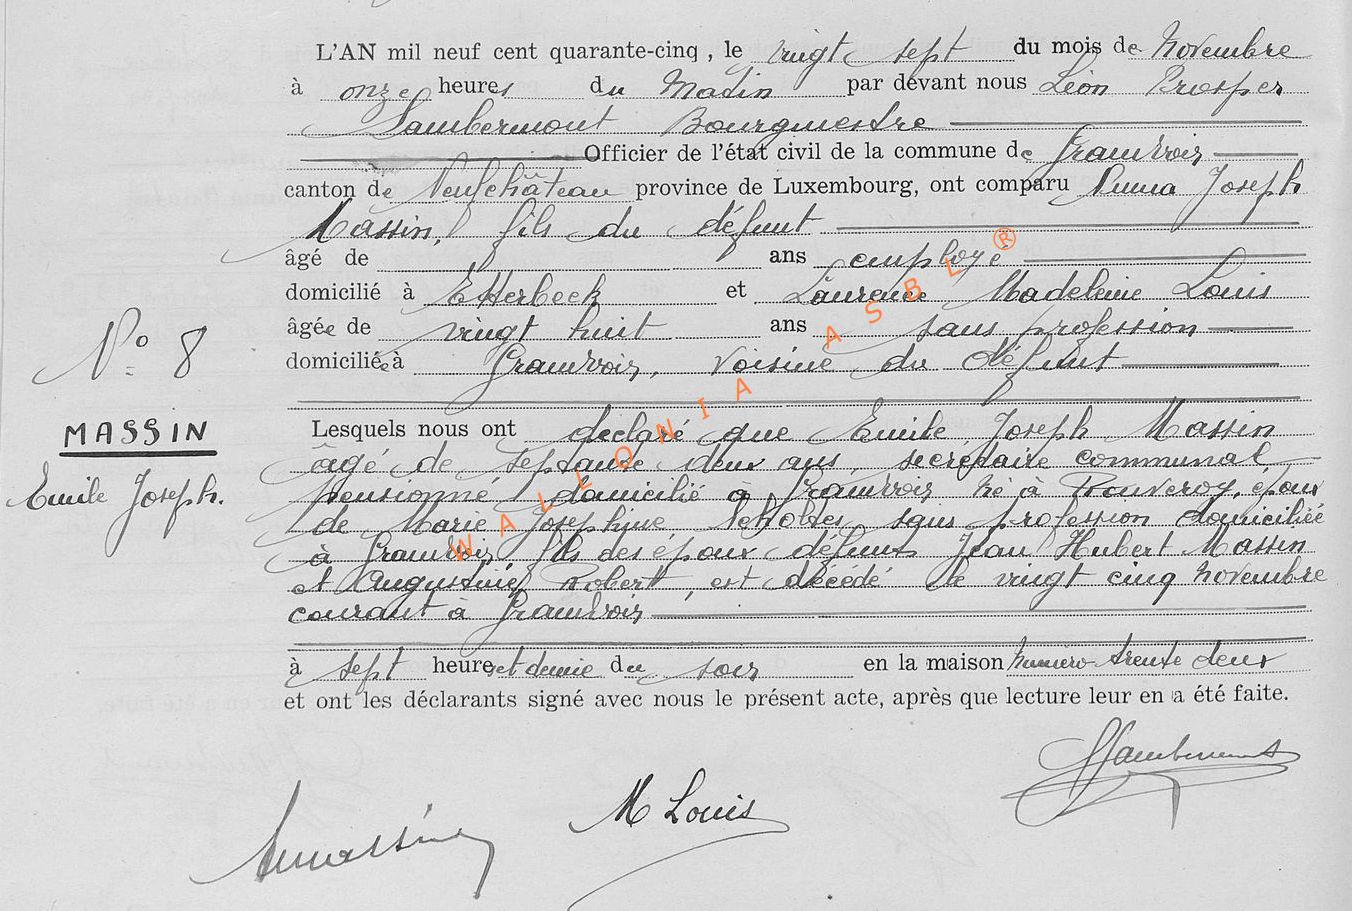 L'AN mil neuf cent quarante-cinq, le vingt sept du mois de Novembre
à onze heures du Matin par devant nous Léon Prosper
Lambermont Bourgmestre
Officier de l'état civil de la commune de Grandvoir
canton de Neufchâteau province de Luxembourg, ont comparu Numa Joseph
Massin, fils du défunt
âgé de ans employé
domicilié à Etterbeek et Laurence Madeleine Louis
âgée de vingt huit ans sans profession
domiciliée à Grandvoir, voisine du défunt
N° 8
MASSIN
Emile Joseph.
Lesquels nous ont déclaré que Emile Joseph Massin
âgé de septante deux ans, secrétaire communal
pensionné domicilié à Grandvoir né à Rouvroy, époux
de Marie Joséphine sans profession domiciliée
à Grandvoir, fils des époux défunts Jean Hubert Massin
et Augustine Robert, est décédé le vingt cinq Novembre
courant à Grandvoir
à sept heures et demie du soir en la maison numéro trente deux
et ont les déclarants signé avec nous le présent acte, après que lecture leur en a été faite.
Lambermont
M Louis
Massin
WALLONIA ASBL ®